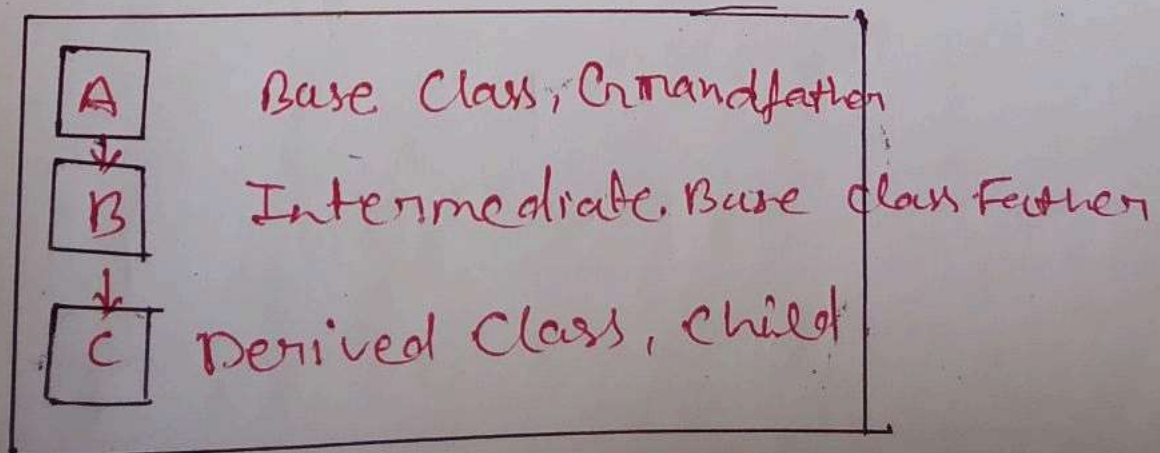 A Base Class, Grandfather
B Intermediate. Base class Father
C Derived Class, child